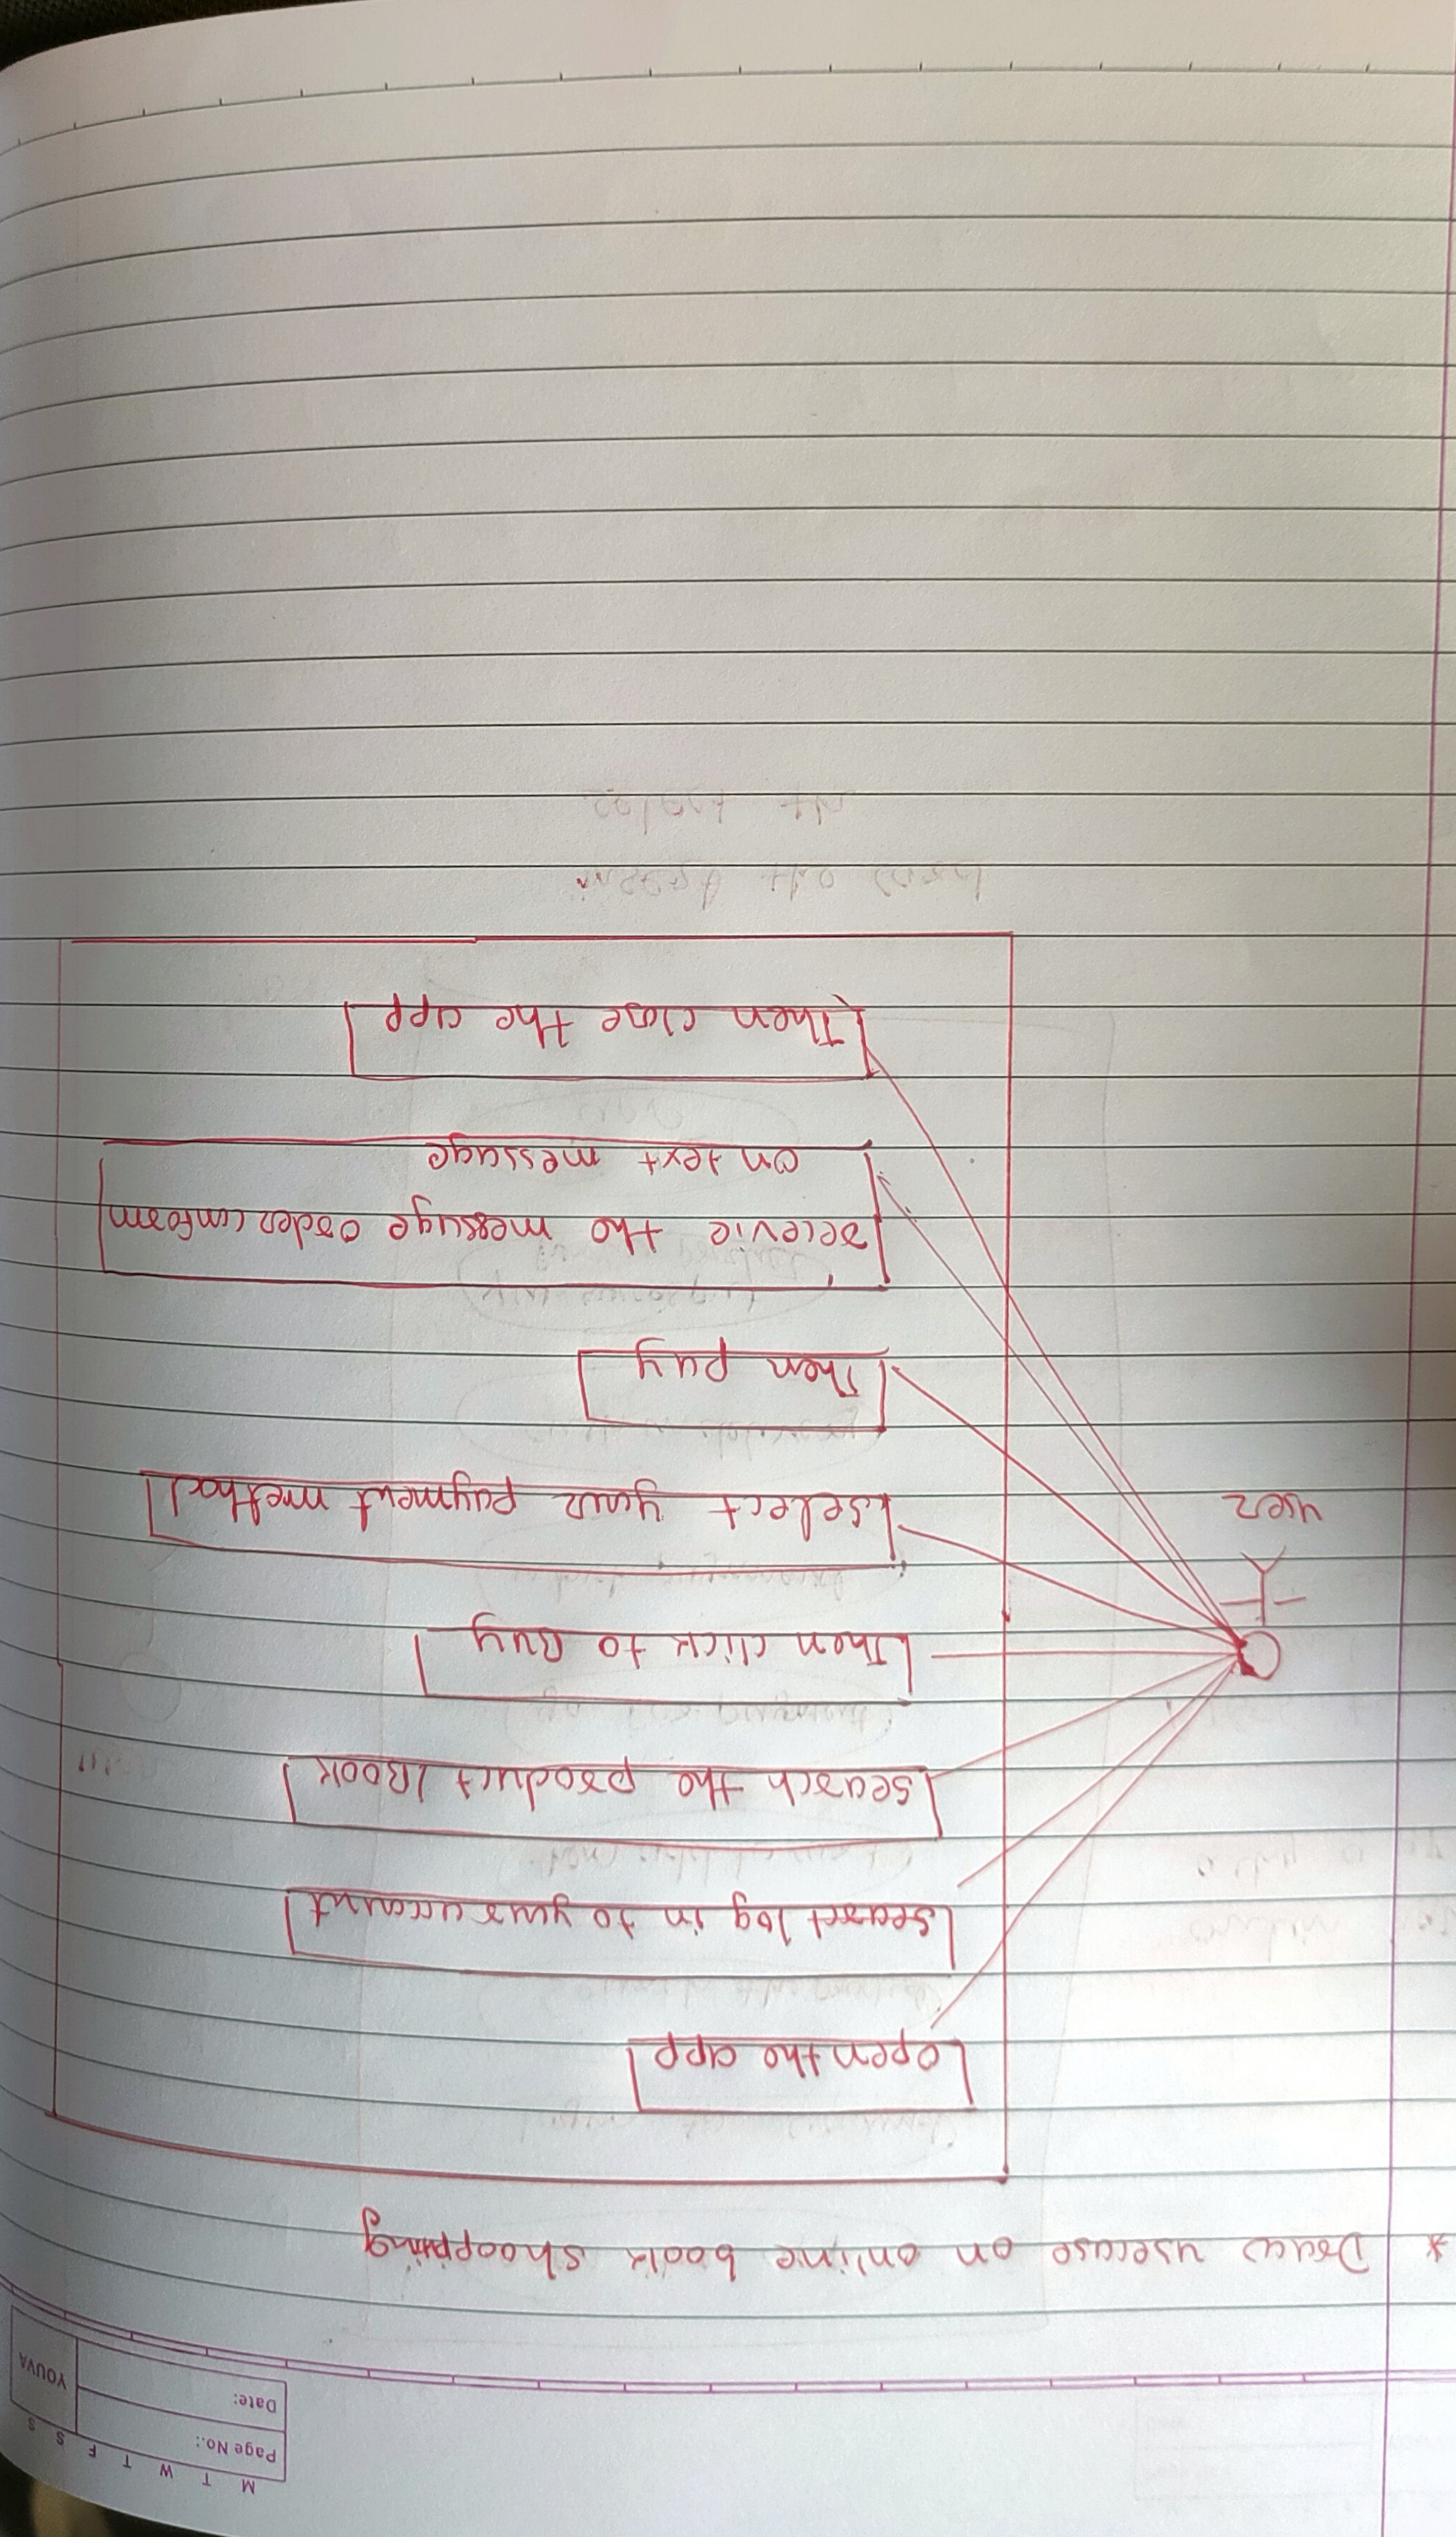 M T W T F S S
Page No.:
Date:
YOUVA
* Draw usecase on online book shoopping
open the app
searct log in to your account
search the product / Book
Then click to Buy
select your payment method
Then pay
recevie the message order conform
on text message
Then close the app
user